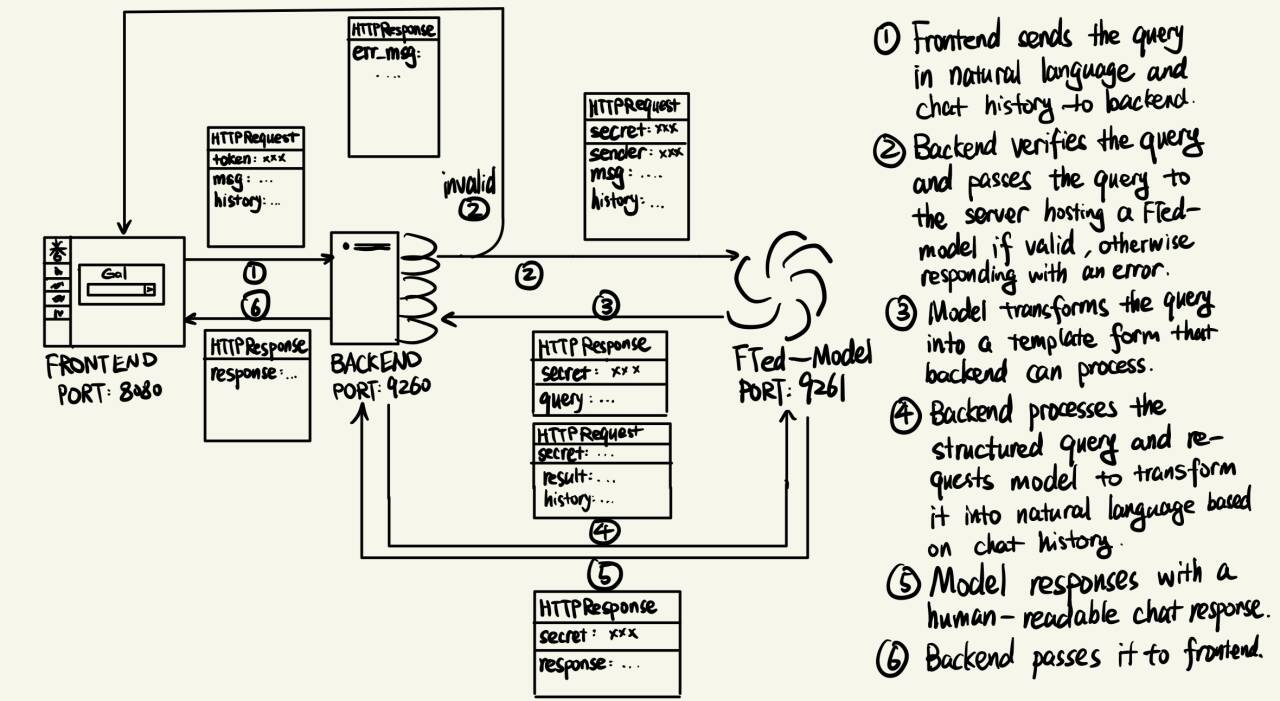 HTTPResponse
err_msg:
....
HTTPRequest
token: xxx
msg: ...
history:...
invalid
②
HTTPRequest
secret: xxx
sender: xxx
msg: ....
history: ...
①
⑥
②
③
FRONTEND
PORT: 8080
HTTPResponse
response:...
BACKEND
PORT: 9260
HTTPResponse
secret: xxx
query: ...
FTed-Model
PORT: 9261
HTTPRequest
secret: ...
result: ...
history: ...
④
⑤
HTTPResponse
secret: xxx
response: ...
① Frontend sends the query
in natural language and
chat history to backend.
② Backend verifies the query
and passes the query to
the server hosting a FTed-
model if valid, otherwise
responding with an error.
③ Model transforms the query
into a template form that
backend can process.
④ Backend processes the
structured query and re-
quests model to transform
it into natural language based
on chat history.
⑤ Model responses with a
human-readable chat response.
⑥ Backend passes it to frontend.